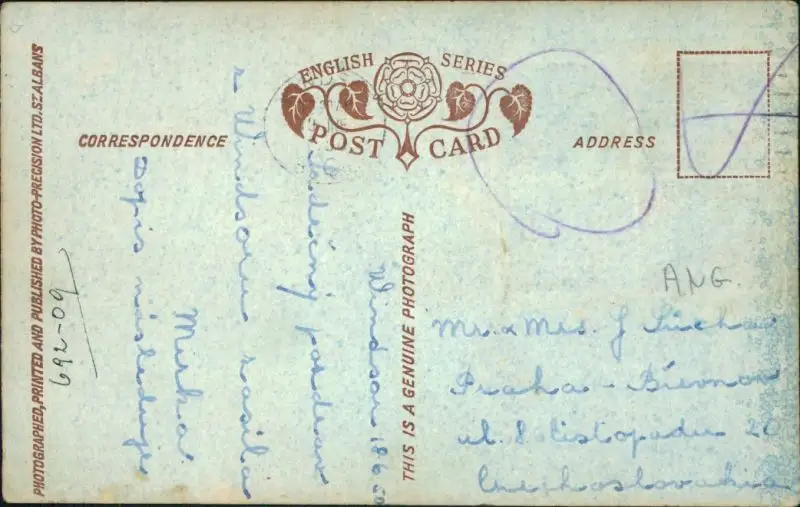 ENGLISH SERIES
POST CARD
CORRESPONDENCE
ADDRESS
Windsor 186
Srdečný pozdrav
z Windsoru zasílá
Mirka
Dopis následuje
ANG.
Mr. & Mrs. J Sucha
Praha - Břevnov
ul. 8 listopadu 20
Czechoslovakia
THIS IS A GENUINE PHOTOGRAPH
692-09
PHOTOGRAPHED, PRINTED AND PUBLISHED BY PHOTO-PRECISION LTD, ST. ALBANS